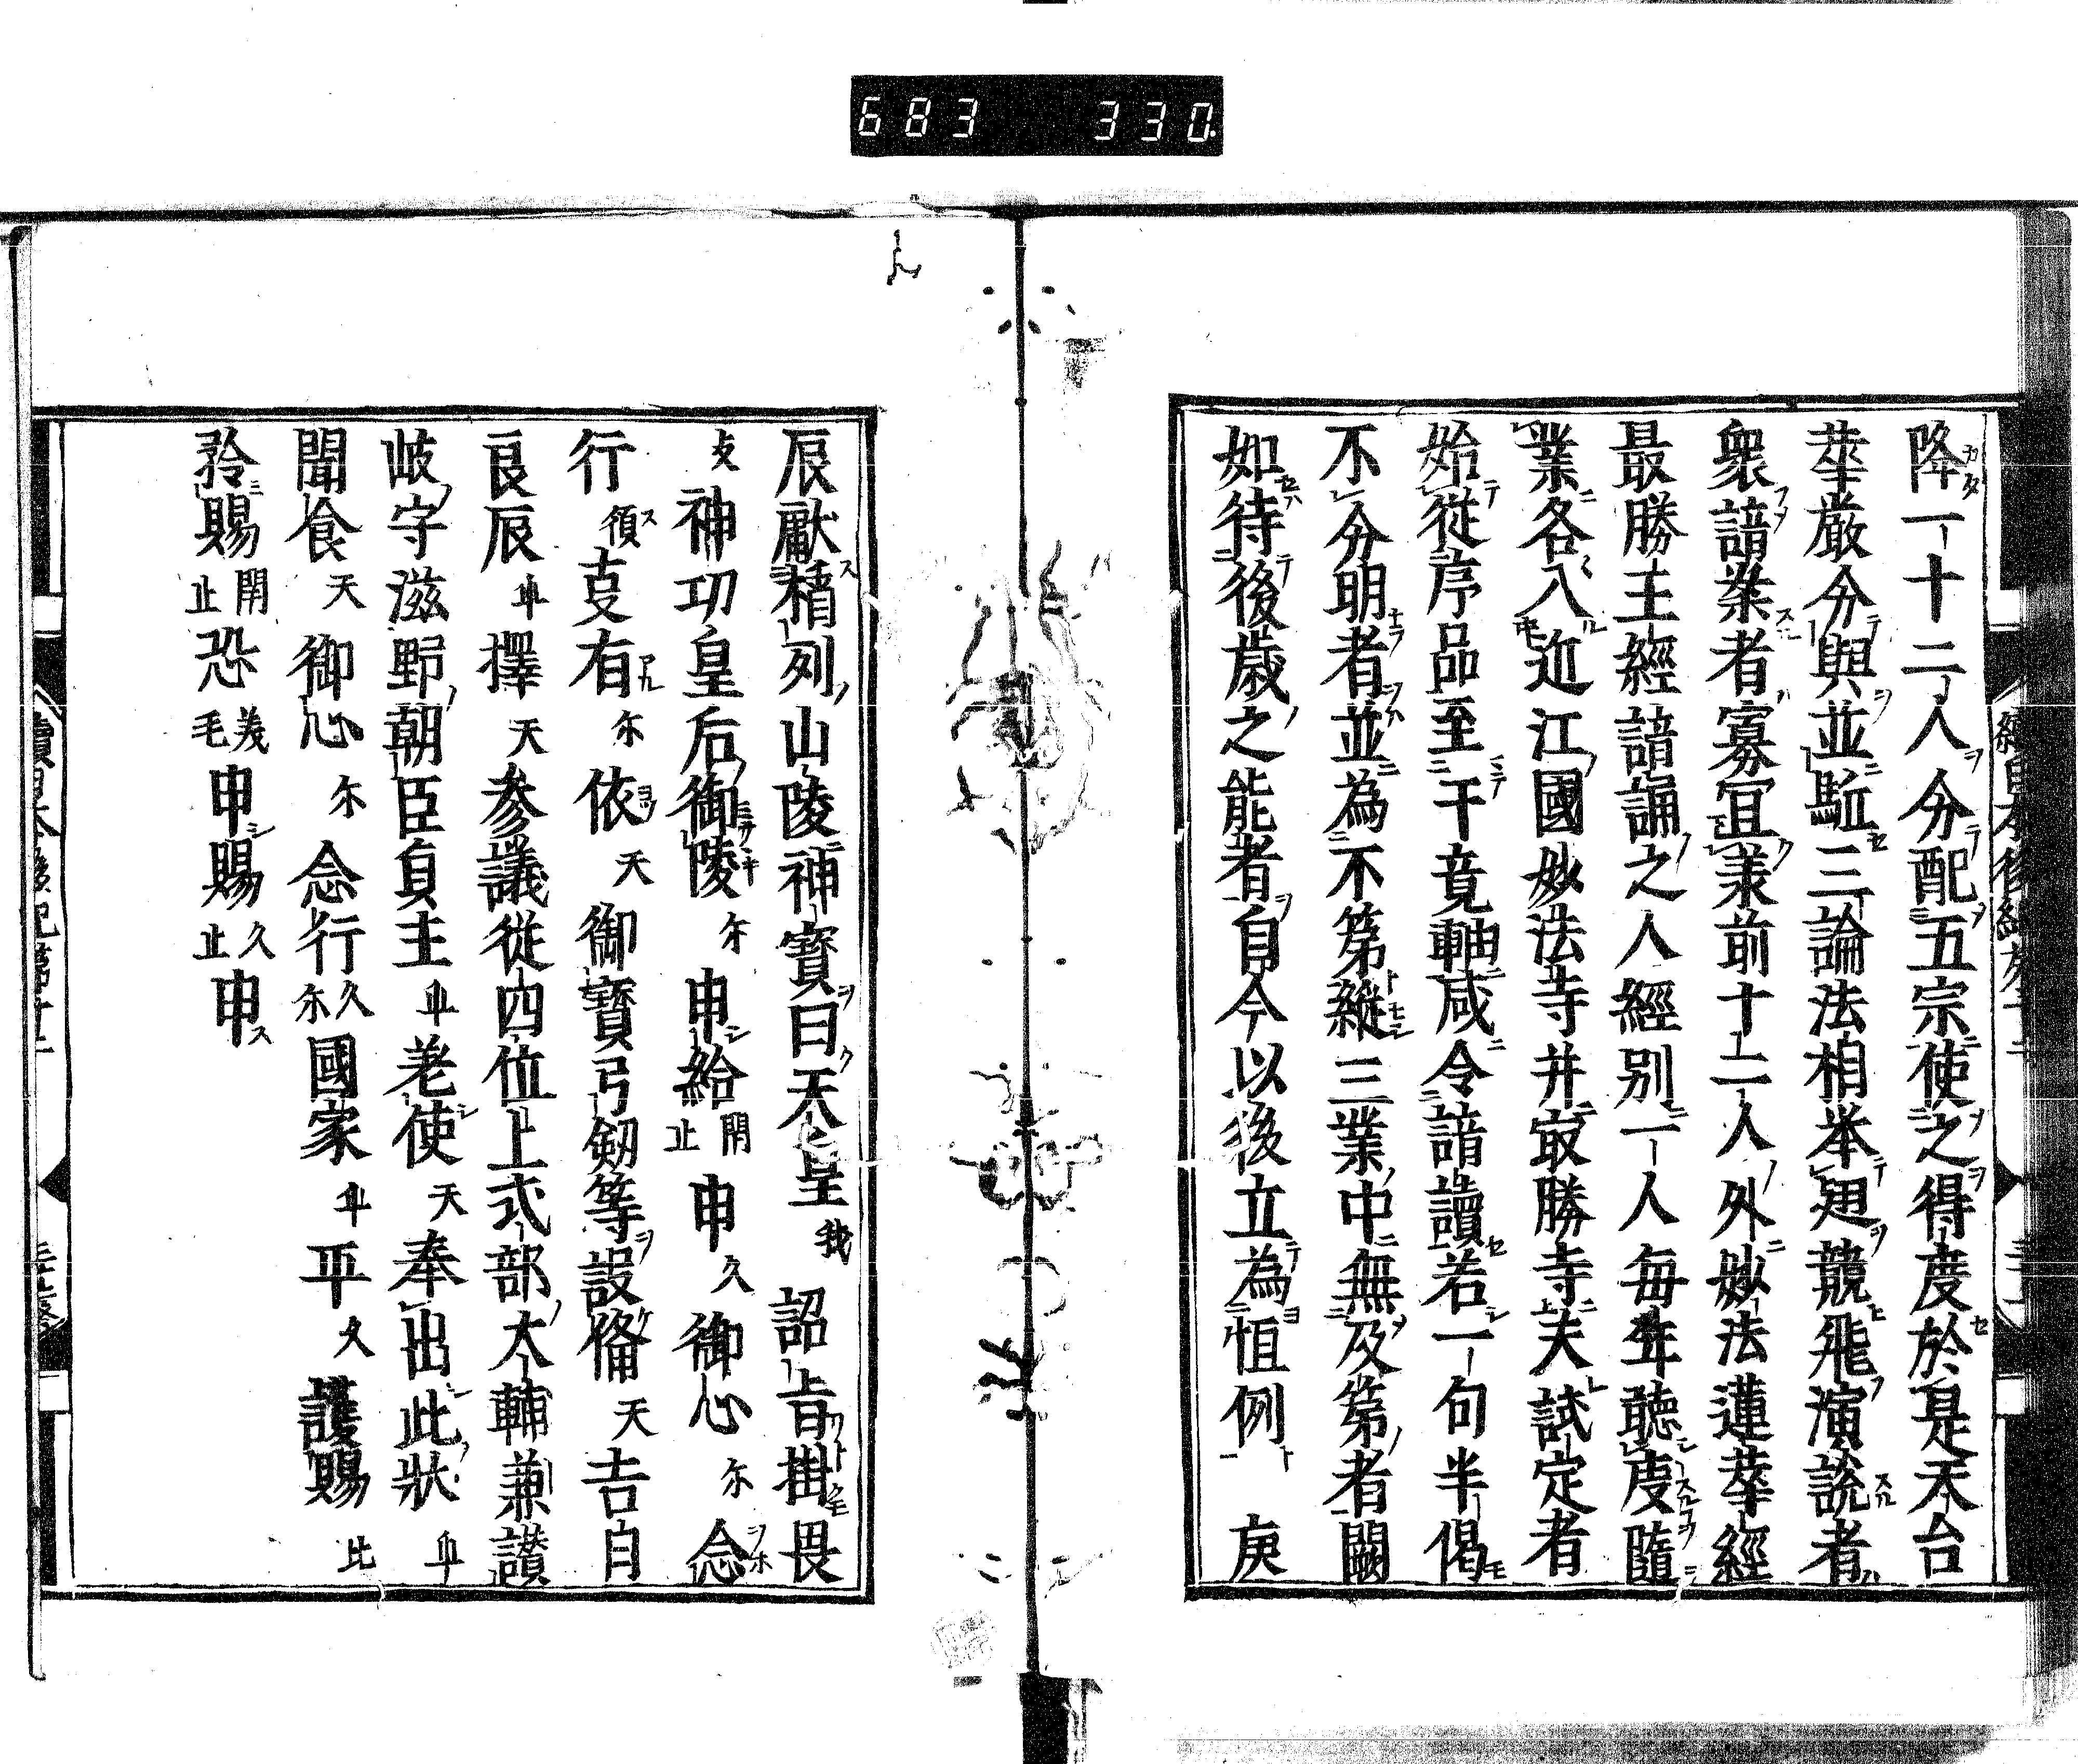 683 330
降一十二人分配五宗使之得度於是天台
華嚴分與並駈三論法相举翅競飛演説者
衆諳業者寡冝兼前十二人外妙法蓮華經
最勝王經諳誦之人經别一人毎年聴度隨
業各八近江國妙法寺并㝡勝寺夫試定者
始從序品至于竟軸咸令諳讀若一句半偈
不分明者並為不第縱三業中無及第者闕
如待後歳之能者自今以後立為恒例 庚
辰獻楯列山陵神寳曰天皇我詔旨掛畏
支神功皇后御陵尓申給閇止申久御心尓念
行須㕝有尓依天御寳弓釼等設俻天吉日
良辰乎擇天参議從四位上式部大輔兼讃
岐守滋野朝臣貞主乎差使天奉出此狀乎
聞食天御心尓念行久尓國家乎平久護賜比
矜賜閇止恐美毛申賜久止申